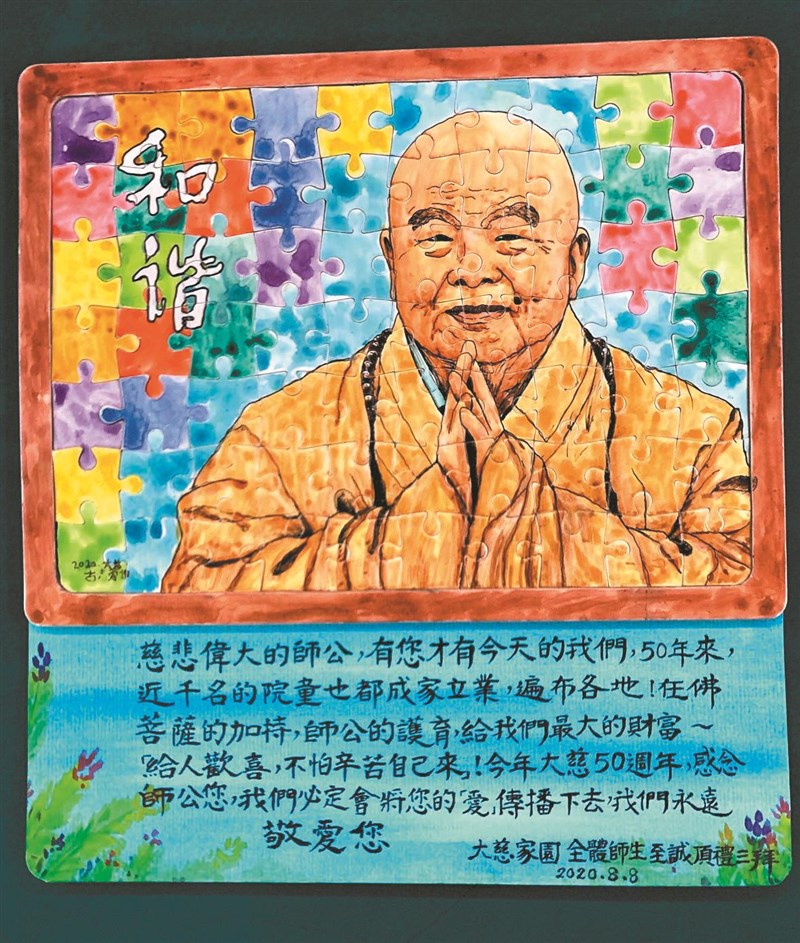 和諧
2020.大慈
慈悲偉大的師公,有您才有今天的我們,50年來,
近千名的院童也都成家立業,遍布各地!在佛
菩薩的加持,師公的護育,給我們最大的財富~
「給人歡喜,不怕辛苦自己來」!今年大慈50週年,感念
師公您,我們必定會將您的「愛」傳播下去,我們永遠
敬愛您
大慈家園 全體師生至誠頂禮三拜
2020.8.8